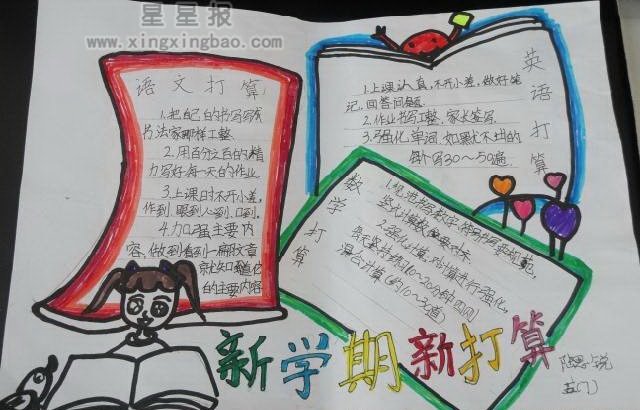 星星报
www.xingxingbao.com
语文打算
1.把自己的书写写成
书法家那样工整.
2.用百分之百的精
力写好每一天的作业.
3.上课时不开小差,
作到眼到心到、口到.
4.加强主要内
容,做到看到一篇文章
就知道它
的主要内容
英语打算
1.上课认真,不开小差,做好笔
记,回答问题.
2.作业书写工整,家长签字.
3.强化单词,如果默不出的
例外写30~50遍.
数学打算
1.规范书写数字,答题书写要规范,
竖式计算数位要对齐.
2.强化计算,对计算进行强化,
每天坚持练10~20分钟四则
混合计算(约10~3道)
新学期新打算
陆思锐